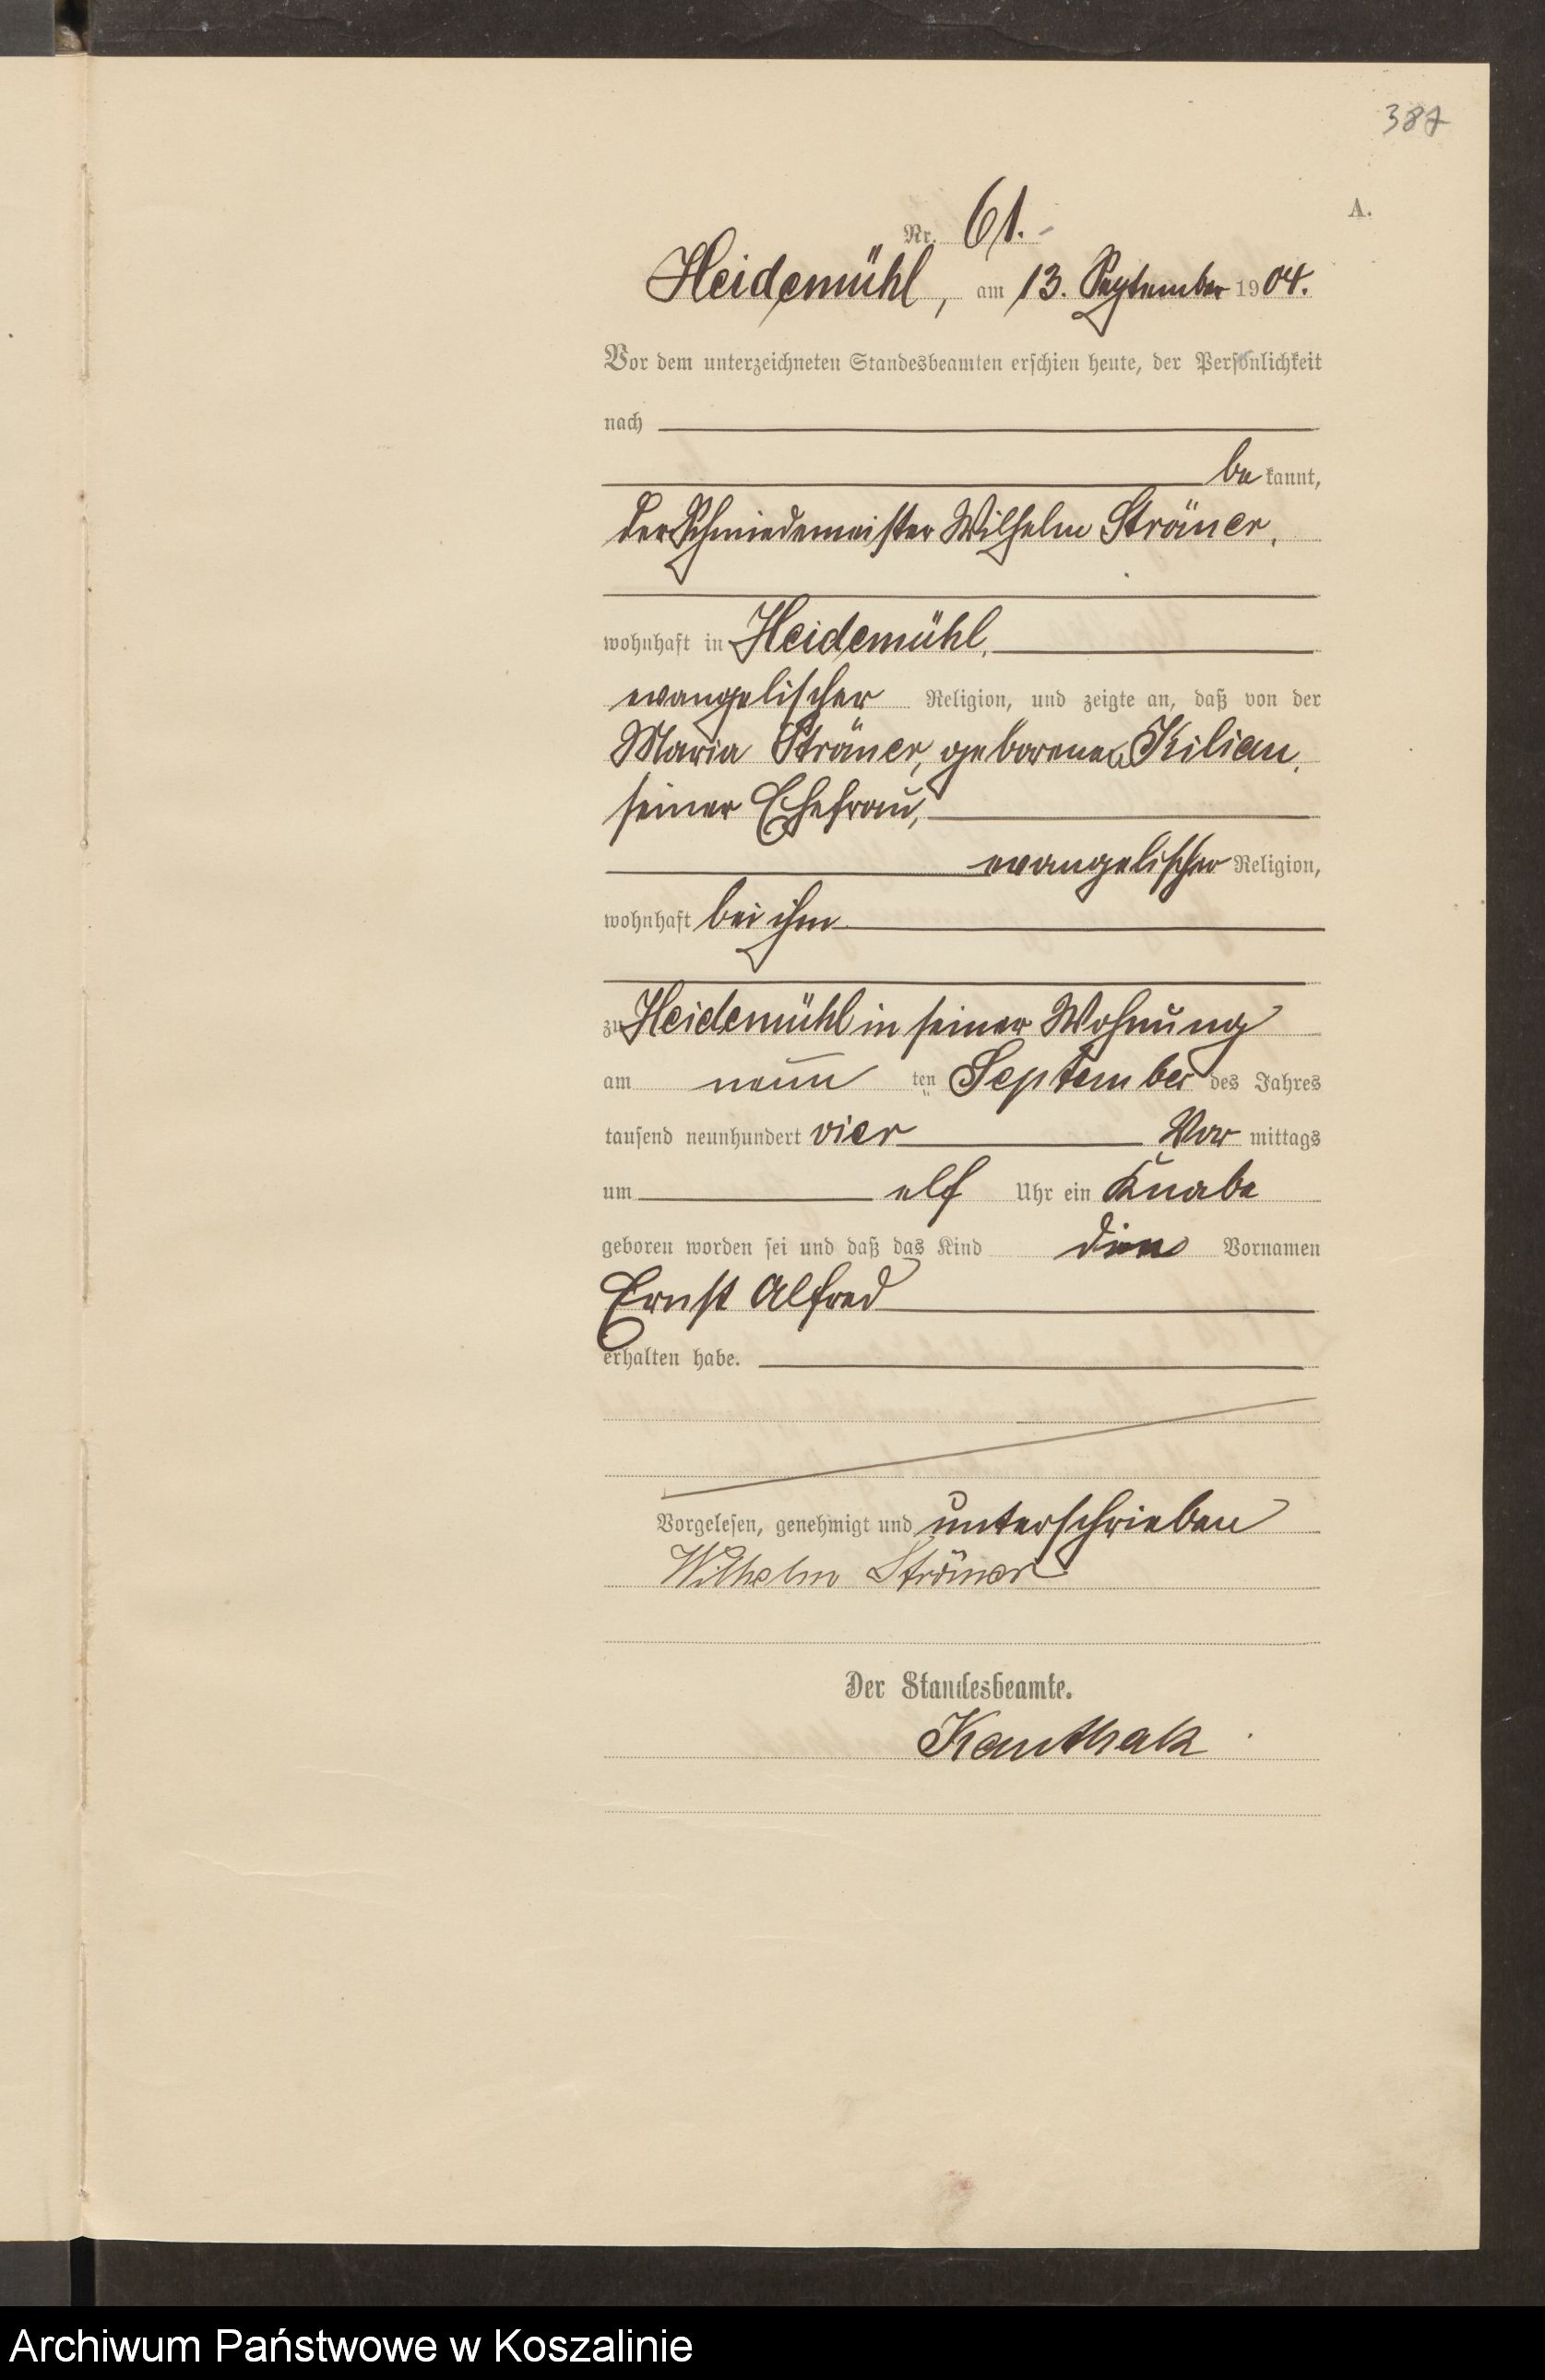 387
A.
Nr. 61.
Heidemühl, am 13. September 1904.
Vor dem unterzeichneten Standesbeamten erschien heute, der Persönlichkeit
nach
be kannt,
der Schmiedemeister Wilhelm Ströner,
wohnhaft in Heidemühl,
evangelischer Religion, und zeigte an, daß von der
Maria Ströner, geborenen Kilian,
seiner Ehefrau,
evangelischer Religion,
wohnhaft bei ihm
zu Heidemühl in seiner Wohnung
am neun ten September des Jahres
tausend neunhundert vier Vor mittags
um elf Uhr ein Knabe
geboren worden sei und daß das Kind die Vornamen
Ernst Alfred
erhalten habe.
Vorgelesen, genehmigt und unterschrieben
Wilhelm Ströner
Der Standesbeamte.
Kanthak
Archiwum Państwowe w Koszalinie